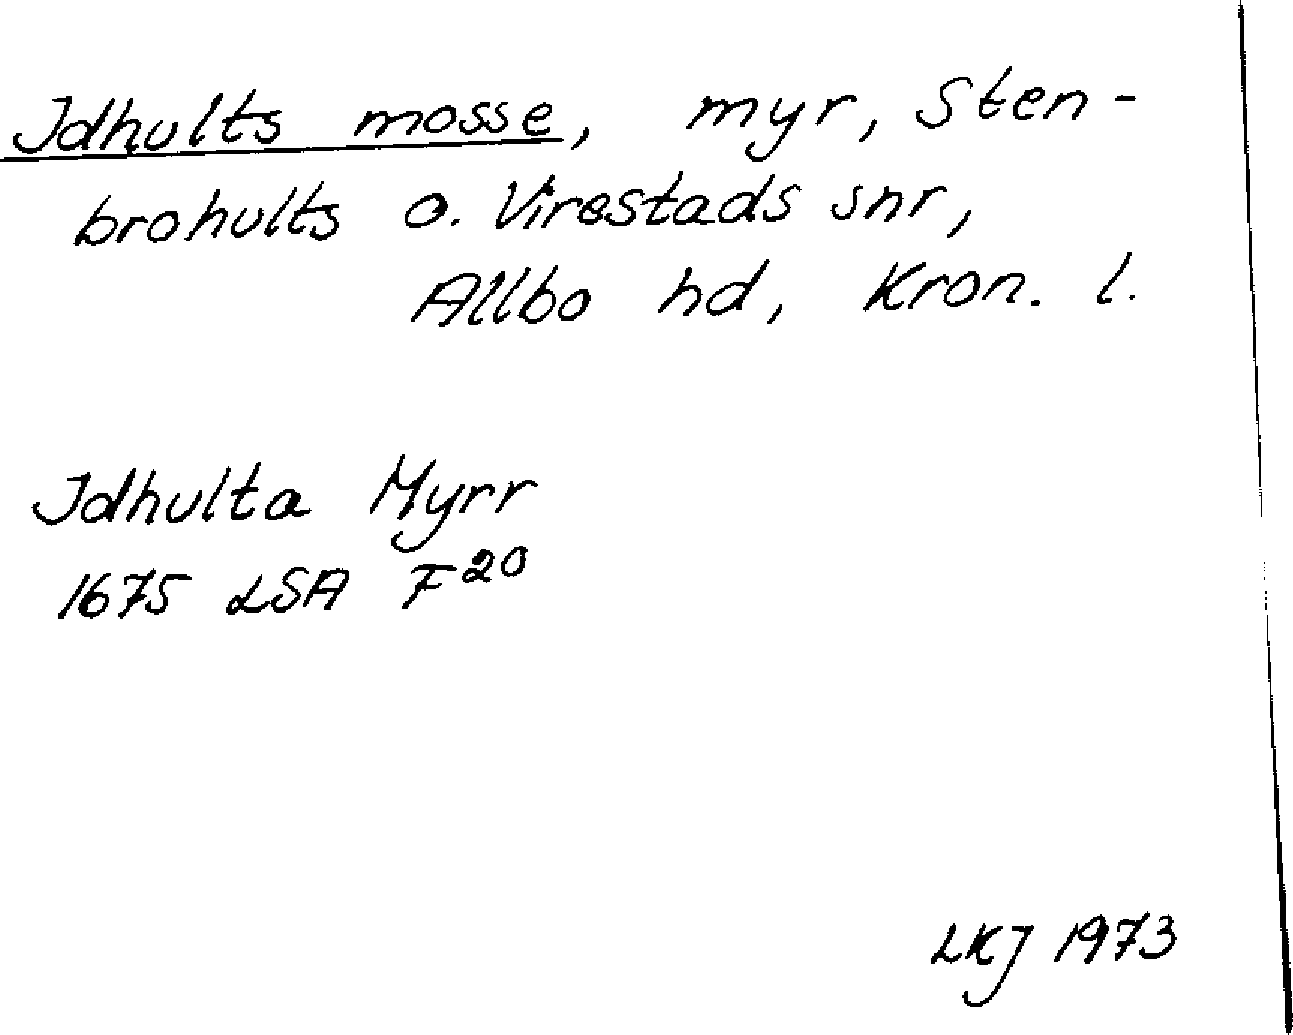 Idhults mosse, myr, Sten-
brohults o. Virestads snr,
Allbo hd, Kron. l.
Idhulta Myrr
1675 LSA F20
LKJ 1973